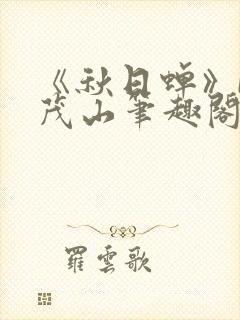 《秋日蝉》
茂山筆趣閣
羅雲歌